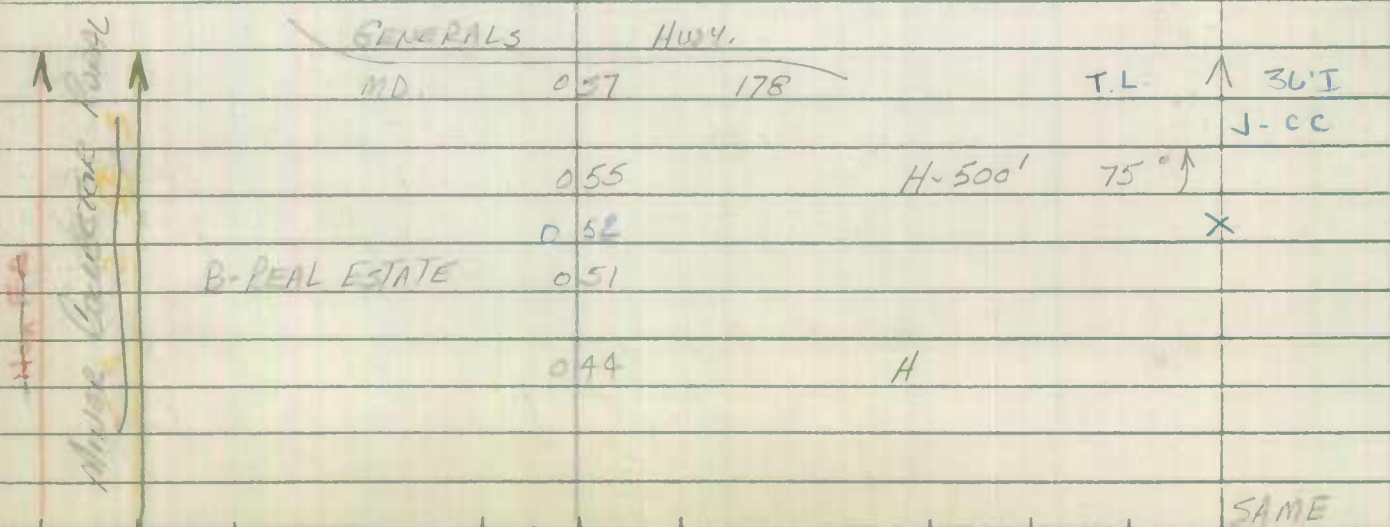 GENERALS HWY.
MD. 0 57 178 T.L. 36' I
J-CC
0 55 H-500' 75°
0 52 X
B-REAL ESTATE 0 51
0 44 H
SAME
MINOR COLLECTOR RURAL